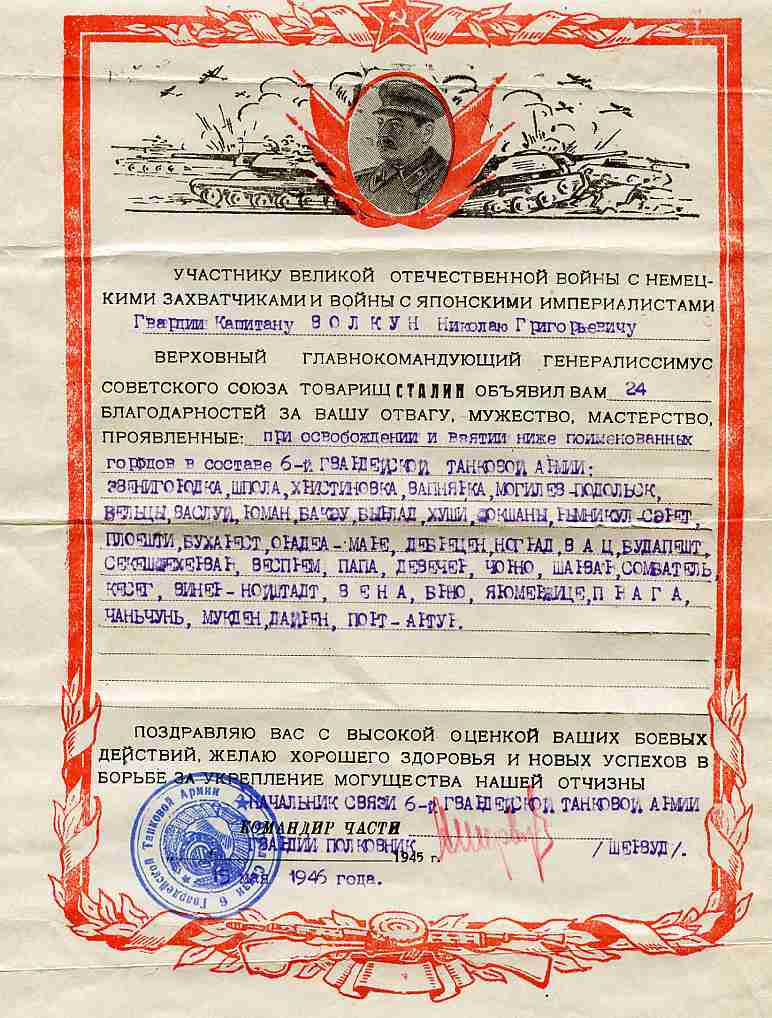 УЧАСТНИКУ ВЕЛИКОЙ ОТЕЧЕСТВЕННОЙ ВОЙНЫ С НЕМЕЦ-
КИМИ ЗАХВАТЧИКАМИ И ВОЙНЫ С ЯПОНСКИМИ ИМПЕРИАЛИСТАМИ
Гвардии Капитану ВОЛКУН Николаю Григорьевичу
ВЕРХОВНЫЙ ГЛАВНОКОМАНДУЮЩИЙ ГЕНЕРАЛИССИМУС
СОВЕТСКОГО СОЮЗА ТОВАРИЩ СТАЛИН ОБЪЯВИЛ ВАМ 24
БЛАГОДАРНОСТЕЙ ЗА ВАШУ ОТВАГУ, МУЖЕСТВО, МАСТЕРСТВО,
ПРОЯВЛЕННЫЕ: при освобождении и взятии ниже поименованных
городов в составе 6-й ГВАРДЕЙСКОЙ ТАНКОВОЙ АРМИИ:
ЗВЕНИГОРОДКА, ШПОЛА, ХРИСТИНОВКА, ВАПНЯРКА, МОГИЛЕВ-ПОДОЛЬСК,
БЕЛЬЦЫ, ВАСЛУЙ, РОМАН, БАКЭУ, БЫРЛАД, ХУШИ, ФОКШАНЫ, РЫМНИКУЛ-СЭРЕТ,
ПЛОЕШТИ, БУХАРЕСТ, ОРАДЕА-МАРЕ, ДЕБРЕЦЕН, НОГРАД, ВАЦ, БУДАПЕШТ,
СЕКЕШФЕХЕРВАР, ВЕСПРЕМ, ПАПА, ДЕВЕЧЕР, ЧОРНО, ШАРВАР, СОМБАТЕЛЬ,
КЕСЕГ, ВИНЕР-НОЙШТАДТ, ВЕНА, БРНО, ЯРОМЕРЖИЦЕ, ПРАГА,
ЧАНЬЧУНЬ, МУКДЕН, ДАЙРЕН, ПОРТ-АРТУР.
ПОЗДРАВЛЯЮ ВАС С ВЫСОКОЙ ОЦЕНКОЙ ВАШИХ БОЕВЫХ
ДЕЙСТВИЙ, ЖЕЛАЮ ХОРОШЕГО ЗДОРОВЬЯ И НОВЫХ УСПЕХОВ В
БОРЬБЕ ЗА УКРЕПЛЕНИЕ МОГУЩЕСТВА НАШЕЙ ОТЧИЗНЫ
НАЧАЛЬНИК СВЯЗИ 6-й ГВАРДЕЙСКОЙ ТАНКОВОЙ АРМИИ
КОМАНДИР ЧАСТИ
ГВАРДИИ ПОЛКОВНИК /ШЕРВУД/.
1945 г.
15 мая 1946 года.
Связи 6 Гвардейской Танковой Армии